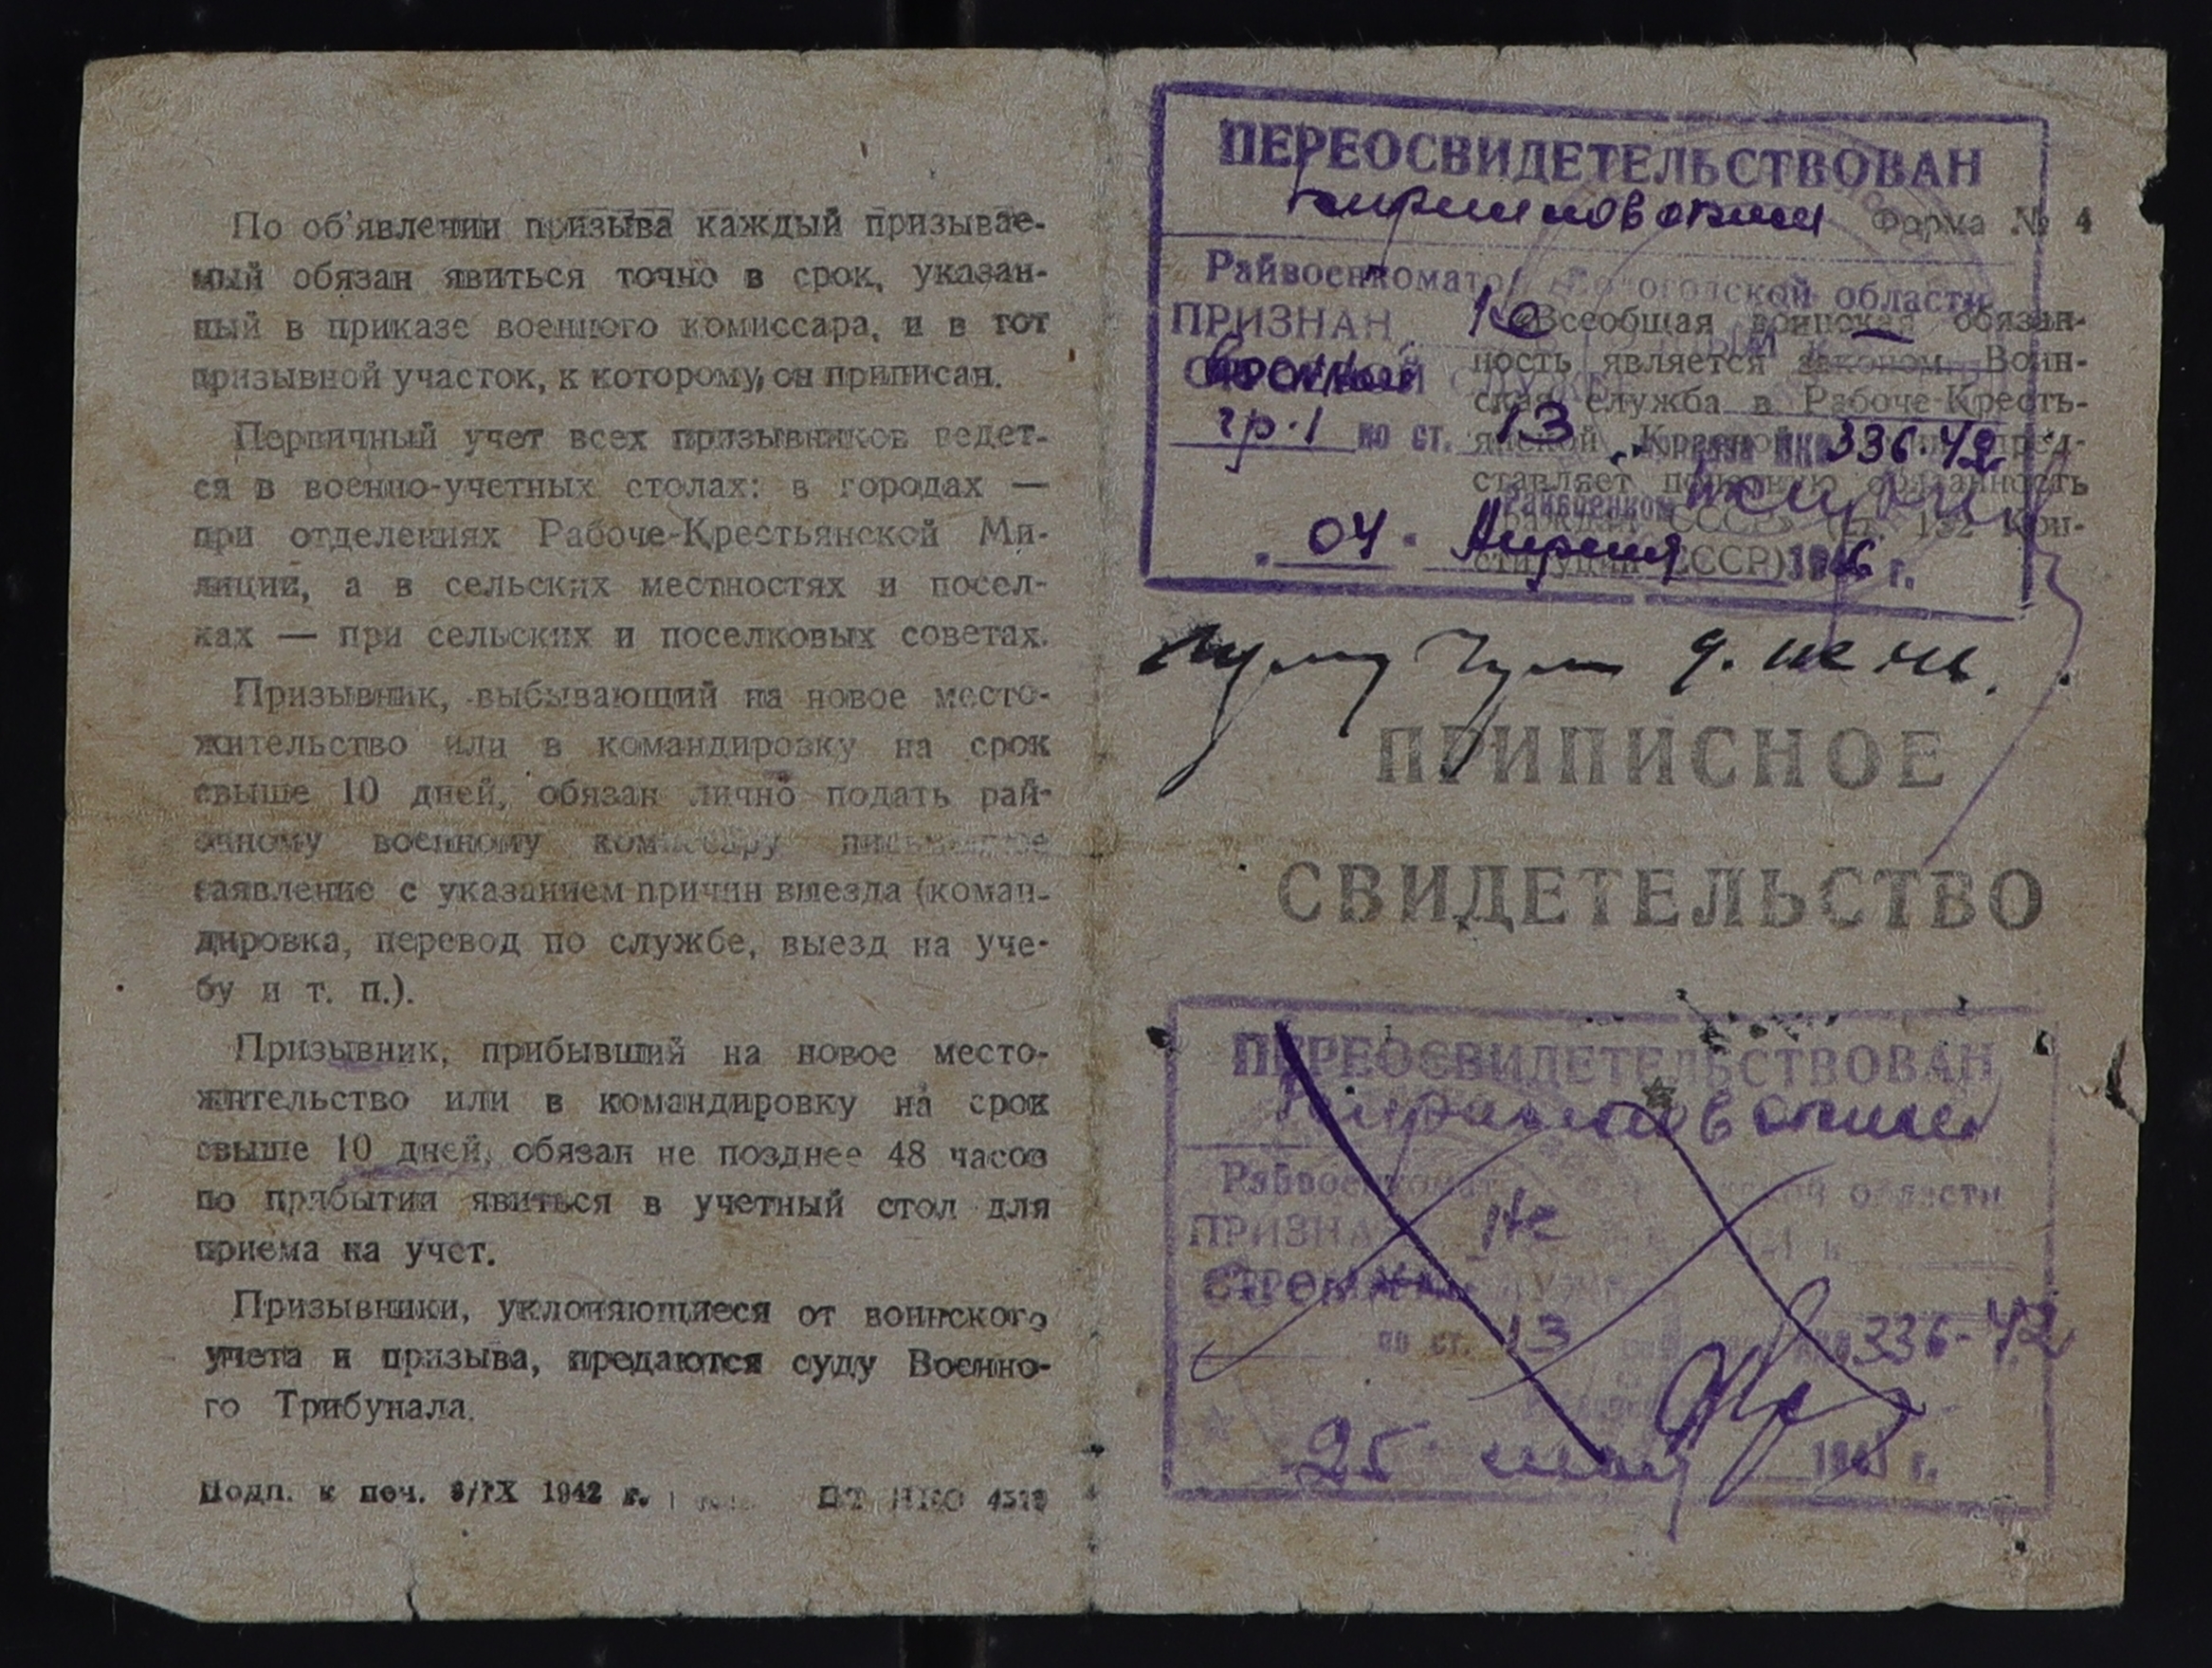 По об'явлении призыва каждый призывае-
мый обязан явиться точно в срок, указан-
ный в приказе военного комиссара, и в тот
призывной участок, к которому, он приписан.
Первичный учет всех призывников ведет-
ся в военно-учетных столах: в городах —
при отделениях Рабоче-Крестьянской Ми-
лиции, а в сельских местностях и посел-
ках — при сельских и поселковых советах.
Призывник, выбывающий на новое место-
жительство или в командировку на срок
свыше 10 дней, обязан лично подать рай-
онному военному комиссару письменное
заявление с указанием причин выезда (коман-
дировка, перевод по службе, выезд на уче-
бу и т. п.).
Призывник, прибывший на новое место-
жительство или в командировку на срок
свыше 10 дней, обязан не позднее 48 часов
по прибытии явиться в учетный стол для
приема на учет.
Призывники, уклоняющиеся от воинского
учета и призыва, предаются суду Военно-
го Трибунала.
Подп. к печ. 8/IX 1942 г.
ПЕРЕОСВИДЕТЕЛЬСТВОВАН
Форма № 4
Райвоенкоматом Вологодской области
ПРИЗНАН не
гр. 1 по ст. 13 336-42
Райвоенком
04 Апреля 1946 г.
«Всеобщая воинская обязан-
ность является законом. Воин-
ская служба в Рабоче-Кресть-
янской Красной пред-
ставляет почетную обязанность
граждан СССР» (ст. 132 Кон-
ституции СССР)
ПРИПИСНОЕ
СВИДЕТЕЛЬСТВО
ПЕРЕОСВИДЕТЕЛЬСТВОВАН
Райвоенкоматом области
ПРИЗНАН не
по ст. 13 336-42
25 мая 194 г.